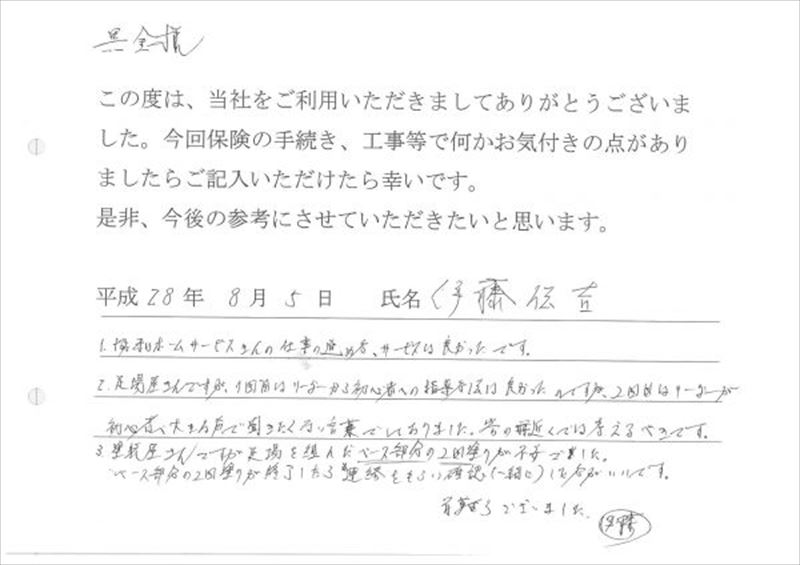 この度は、当社をご利用いただきましてありがとうございま
した。今回保険の手続き、工事等で何かお気付きの点があり
ましたらご記入いただけたら幸いです。
是非、今後の参考にさせていただきたいと思います。
平成 28 年 8 月 5 日 氏名 伊藤伝吉
1. 協和ホームサービスさんの仕事の進め方、サービスは良かったです。
2. 足場屋さんですが、1回目はリーダーから初心者への指導方法は良かったのですが、2回目はリーダーが
初心者に大きな声で聞きたくない言葉でしておりました。客の近くでは考えるべきです。
3. 塗装屋さんですが足場を組んだベース部分の2回塗りが不手でした。
ベース部分の2回塗りが終了したら連絡をもらい確認(一緒に)した方がいいです。
ございました。
伊藤